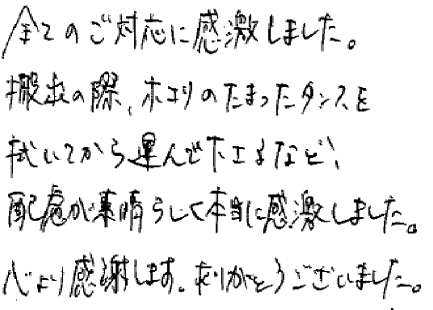 全てのご対応に感激しました。
搬出の際、ホコリのたまったタンスを
拭いてから運んで下さるなど、
配慮が素晴らしくて本当に感激しました。
心より感謝します。ありがとうございました。